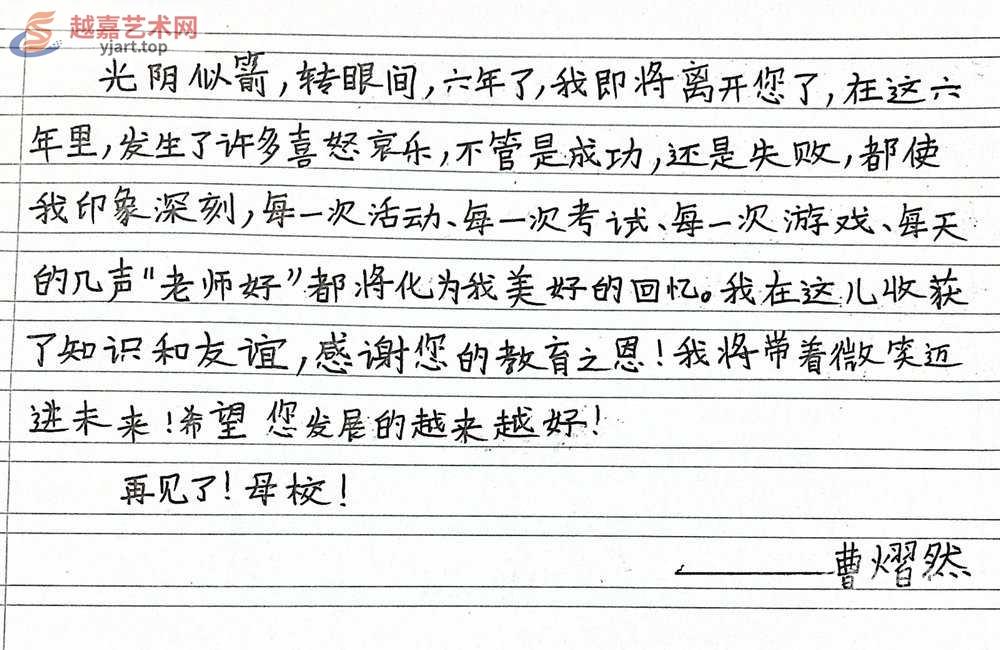 越嘉艺术网
yjart.top
光阴似箭,转眼间,六年了,我即将离开您了,在这六
年里,发生了许多喜怒哀乐,不管是成功,还是失败,都使
我印象深刻,每一次活动、每一次考试、每一次游戏、每天
的几声“老师好”都将化为我美好的回忆。我在这儿收获
了知识和友谊,感谢您的教育之恩!我将带着微笑迈
进未来!希望您发展的越来越好!
再见了!母校!
——曹熠然